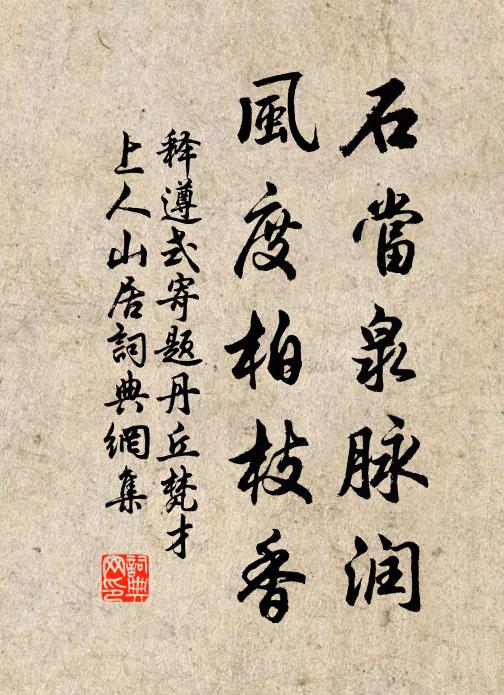 石當泉脉润
風度柏枝香
释遵式寄题丹丘梵才
上人山居詞典網集
詞典
网印